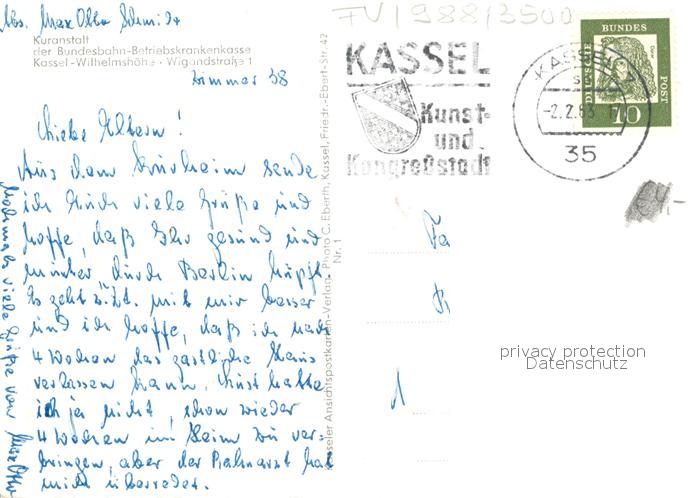 Abs. Max Otto Schmidt
FV/988/3500
Kuranstalt
der Bundesbahn-Betriebskrankenkasse
Kassel-Wilhelmshöhe · Wigandstraße 1
Zimmer 38
KASSEL
Kunst-
und
Kongreßstadt
KASSEL
-2.2.63
35
DEUTSCHE BUNDES POST
10
Liebe Eltern!
Aus dem Kurheim sende
ich Euch viele Grüße und
hoffe, daß Ihr gesund und
munter durch Berlin hüpft.
Es geht z.Zt. mit mir besser
und ich hoffe, daß ich nach
4 Wochen das gastliche Haus
verlassen kann. Lust hatte
ich ja nicht, schon wieder
4 Wochen im Heim zu ver-
bringen, aber der Bahnarzt hat
mich überredet.
Nochmals viele Grüße von Max Otto
Kasseler Ansichtspostkarten-Verlag, Photo C. Eberth, Kassel, Friedr.-Ebert-Str. 42
Nr. 1
Fa
privacy protection
Datenschutz